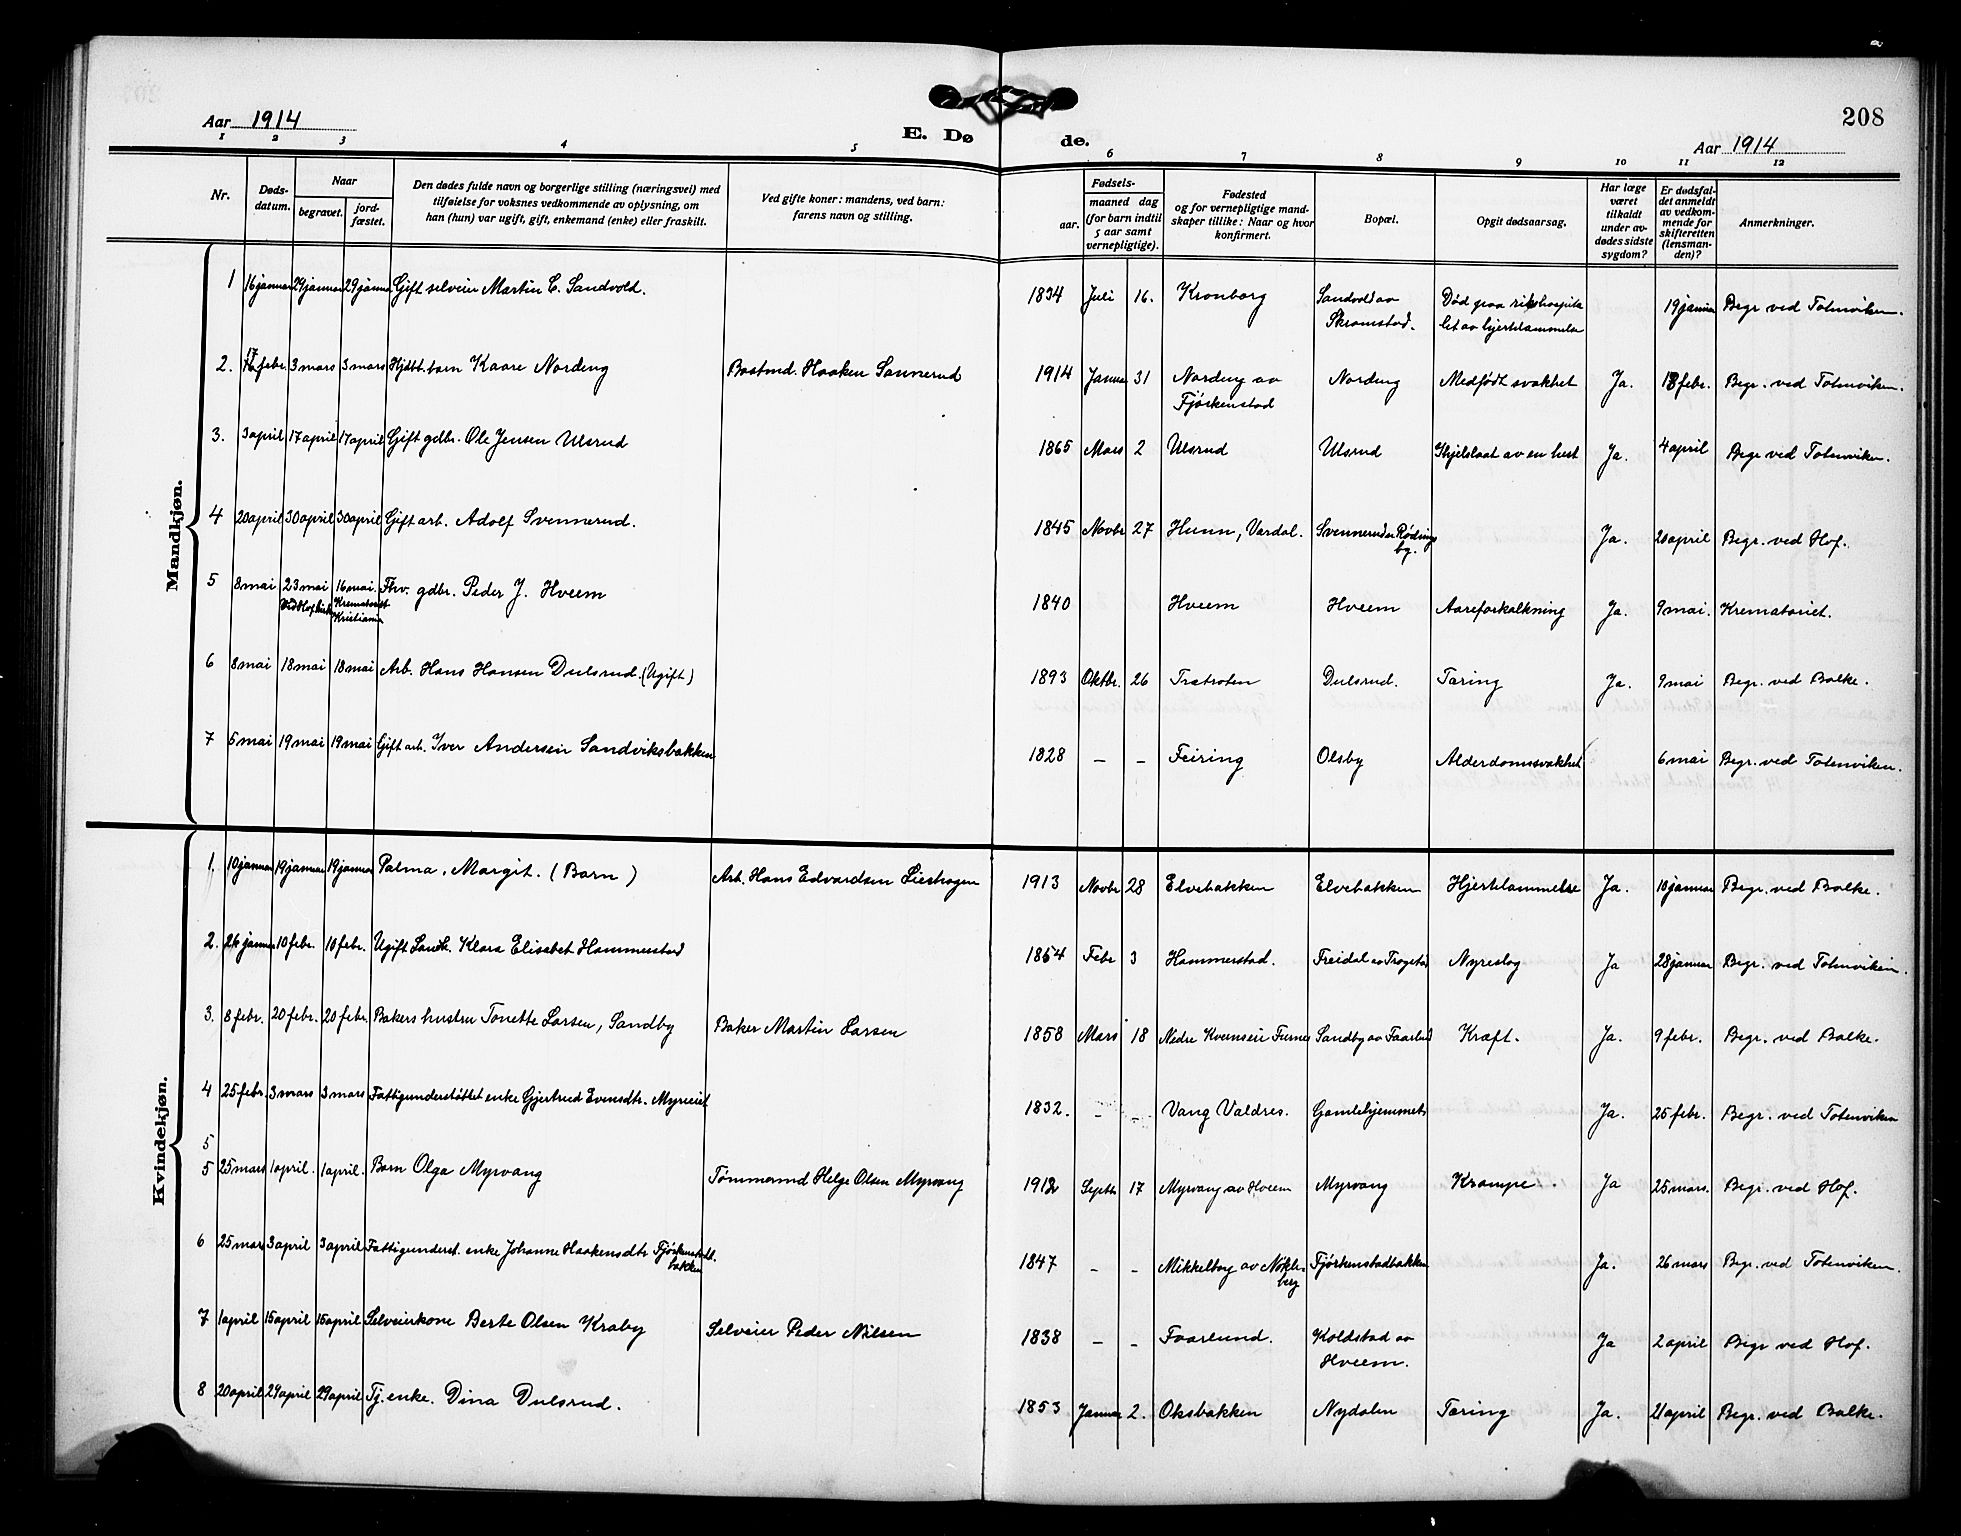 208
Aar 1914
E. Døde.
Aar 1914
1 2 3 4 5 6 7 8 9 10 11 12
Nr.
Døds-
datum.
Naar
begravet.
jord-
fæstet.
Den dødes fulde navn og borgerlige stilling (næringsvei) med
tilføielse for voksnes vedkommende av oplysning, om
han (hun) var ugift, gift, enkemand (enke) eller fraskilt.
Ved gifte koner: mandens, ved barn:
farens navn og stilling.
Fødsels-
aar.
maaned dag
(for barn indtil
5 aar samt
vernepligtige).
Fødested
og for vernepligtige mand-
skaper tillike: Naar og hvor
konfirmert.
Bopæl.
Opgit dødsaarsag.
Har læge
været
tilkaldt
under av-
dødes sidste
sygdom?
Er dødsfal-
det anmeldt
av vedkom-
mende for
skifteretten
(lensman-
den)?
Anmerkninger.
Mandkjøn.
1 16 januar 29 januar 29 januar Gift selveier Martin E. Sandvold. 1834 Juli 16. Kronborg Sandvold av Død paa rikshospita 19 januar Begr ved Totenviken.
Skramstad. let av hjertelammelse
2. 17 febr. 3 mars 3 mars Kaare Nordeng Baatmd. Haaken Sannerud 1914 Januar 31 Nordeng av Nordeng Medfødt svakhet Ja. 18 febr. Begr. ved Totenviken.
Fjørkenstad
3. 3 april 17 april 17 april Gift gdbr. Ole Jensen Ulsrud 1865 Mars 2 Ulsrud Ulsrud Ihjelslaat av en hest Ja. 4 april Begr ved Totenviken.
4 20 april 30 april 30 april Gift arb. Adolf Svennerud. 1845 Novbr 27 Hunn, Vardal. Svennerud av Røding Ja. 20 april Begr. ved Hof.
by.
5 8 mai 23 mai 16 mai. Fhv. gdbr. Peder J. Hveem 1840 Hveem Hveem Aareforkalkning Ja. 9 mai. Krematoriet.
Ved Hof kirke Krematoriet
Kristiania
6 8 mai 18 mai 18 mai Arb. Hans Hansen Dulsrud. (Ugift) 1893 Oktbr. 26 Trætroten Dulsrud. Tæring Ja. 9 mai Begr. ved Balke.
7 5 mai 19 mai 19 mai Gift arb. Iver Andersen Sandviksbakken 1828 – – Feiring Olsby Alderdomssvakhet 6 mai Begr. ved Totenviken.
Kvindekjøn.
1. 10 januar 19 januar 19 januar Palma, Margit. (Barn) Arb. Hans Edvardsen Lieshagen 1913 Novbr 28 Elvebakken Elvebakken Hjertelammelse Ja. 10 januar Begr. ved Balke.
2. 26 januar 10 febr. 10 febr. Ugift Klara Elisabet Hammerstad 1864 Febr 3 Hammerstad. Freidal av Trogstad Nyreslag Ja 28 januar Begr. ved Totenviken.
3. 8 febr. 20 febr. 20 febr. Bakers hustru Tonette Larsen, Sandby Baker Martin Larsen 1858 Mars 18 Nedre Kvernseie Furnes Sandby av Faarlund Kræft. Ja. 9 febr. Begr. ved Balke.
4 25 febr. 3 mars 3 mars Fattigunderstøttet enke Gjertrud Evensdtr. Myreiet 1832. – – Vang Valdres. Gamlehjemmet Ja. 25 febr. Begr. ved Totenviken
5
5 25 mars 1 april. 1 april. Barn Olga Myrvang Tømmermd Helge Olsen Myrvang 1912 Septb 17 Myrvang av Hveem Myrvang Krampe. Ja 25 mars. Begr. ved Hof.
6 25 mars 3 april 3 april Fattigunderst. enke Johanne Haakensdtr Fjørkenstad 1847 – – Mikkelborg av Nøkle- Fjørkenstadbakken Ja. 26 mars Begr. ved Totenviken.
bakken berg
7 1 april 15 april 15 april Selveierkone Berte Olsen Kraby Selveier Peder Nilsen 1838 – – Faarlund. Koldstad av Ja 2 april Begr ved Hof.
Hveem.
8 20 april 29 april 29 april Tj. enke. Dina Dulsrud. 1853 Januar 2. Oksbakken Nydalen Tæring Ja. 21 april Begr. ved Balke.